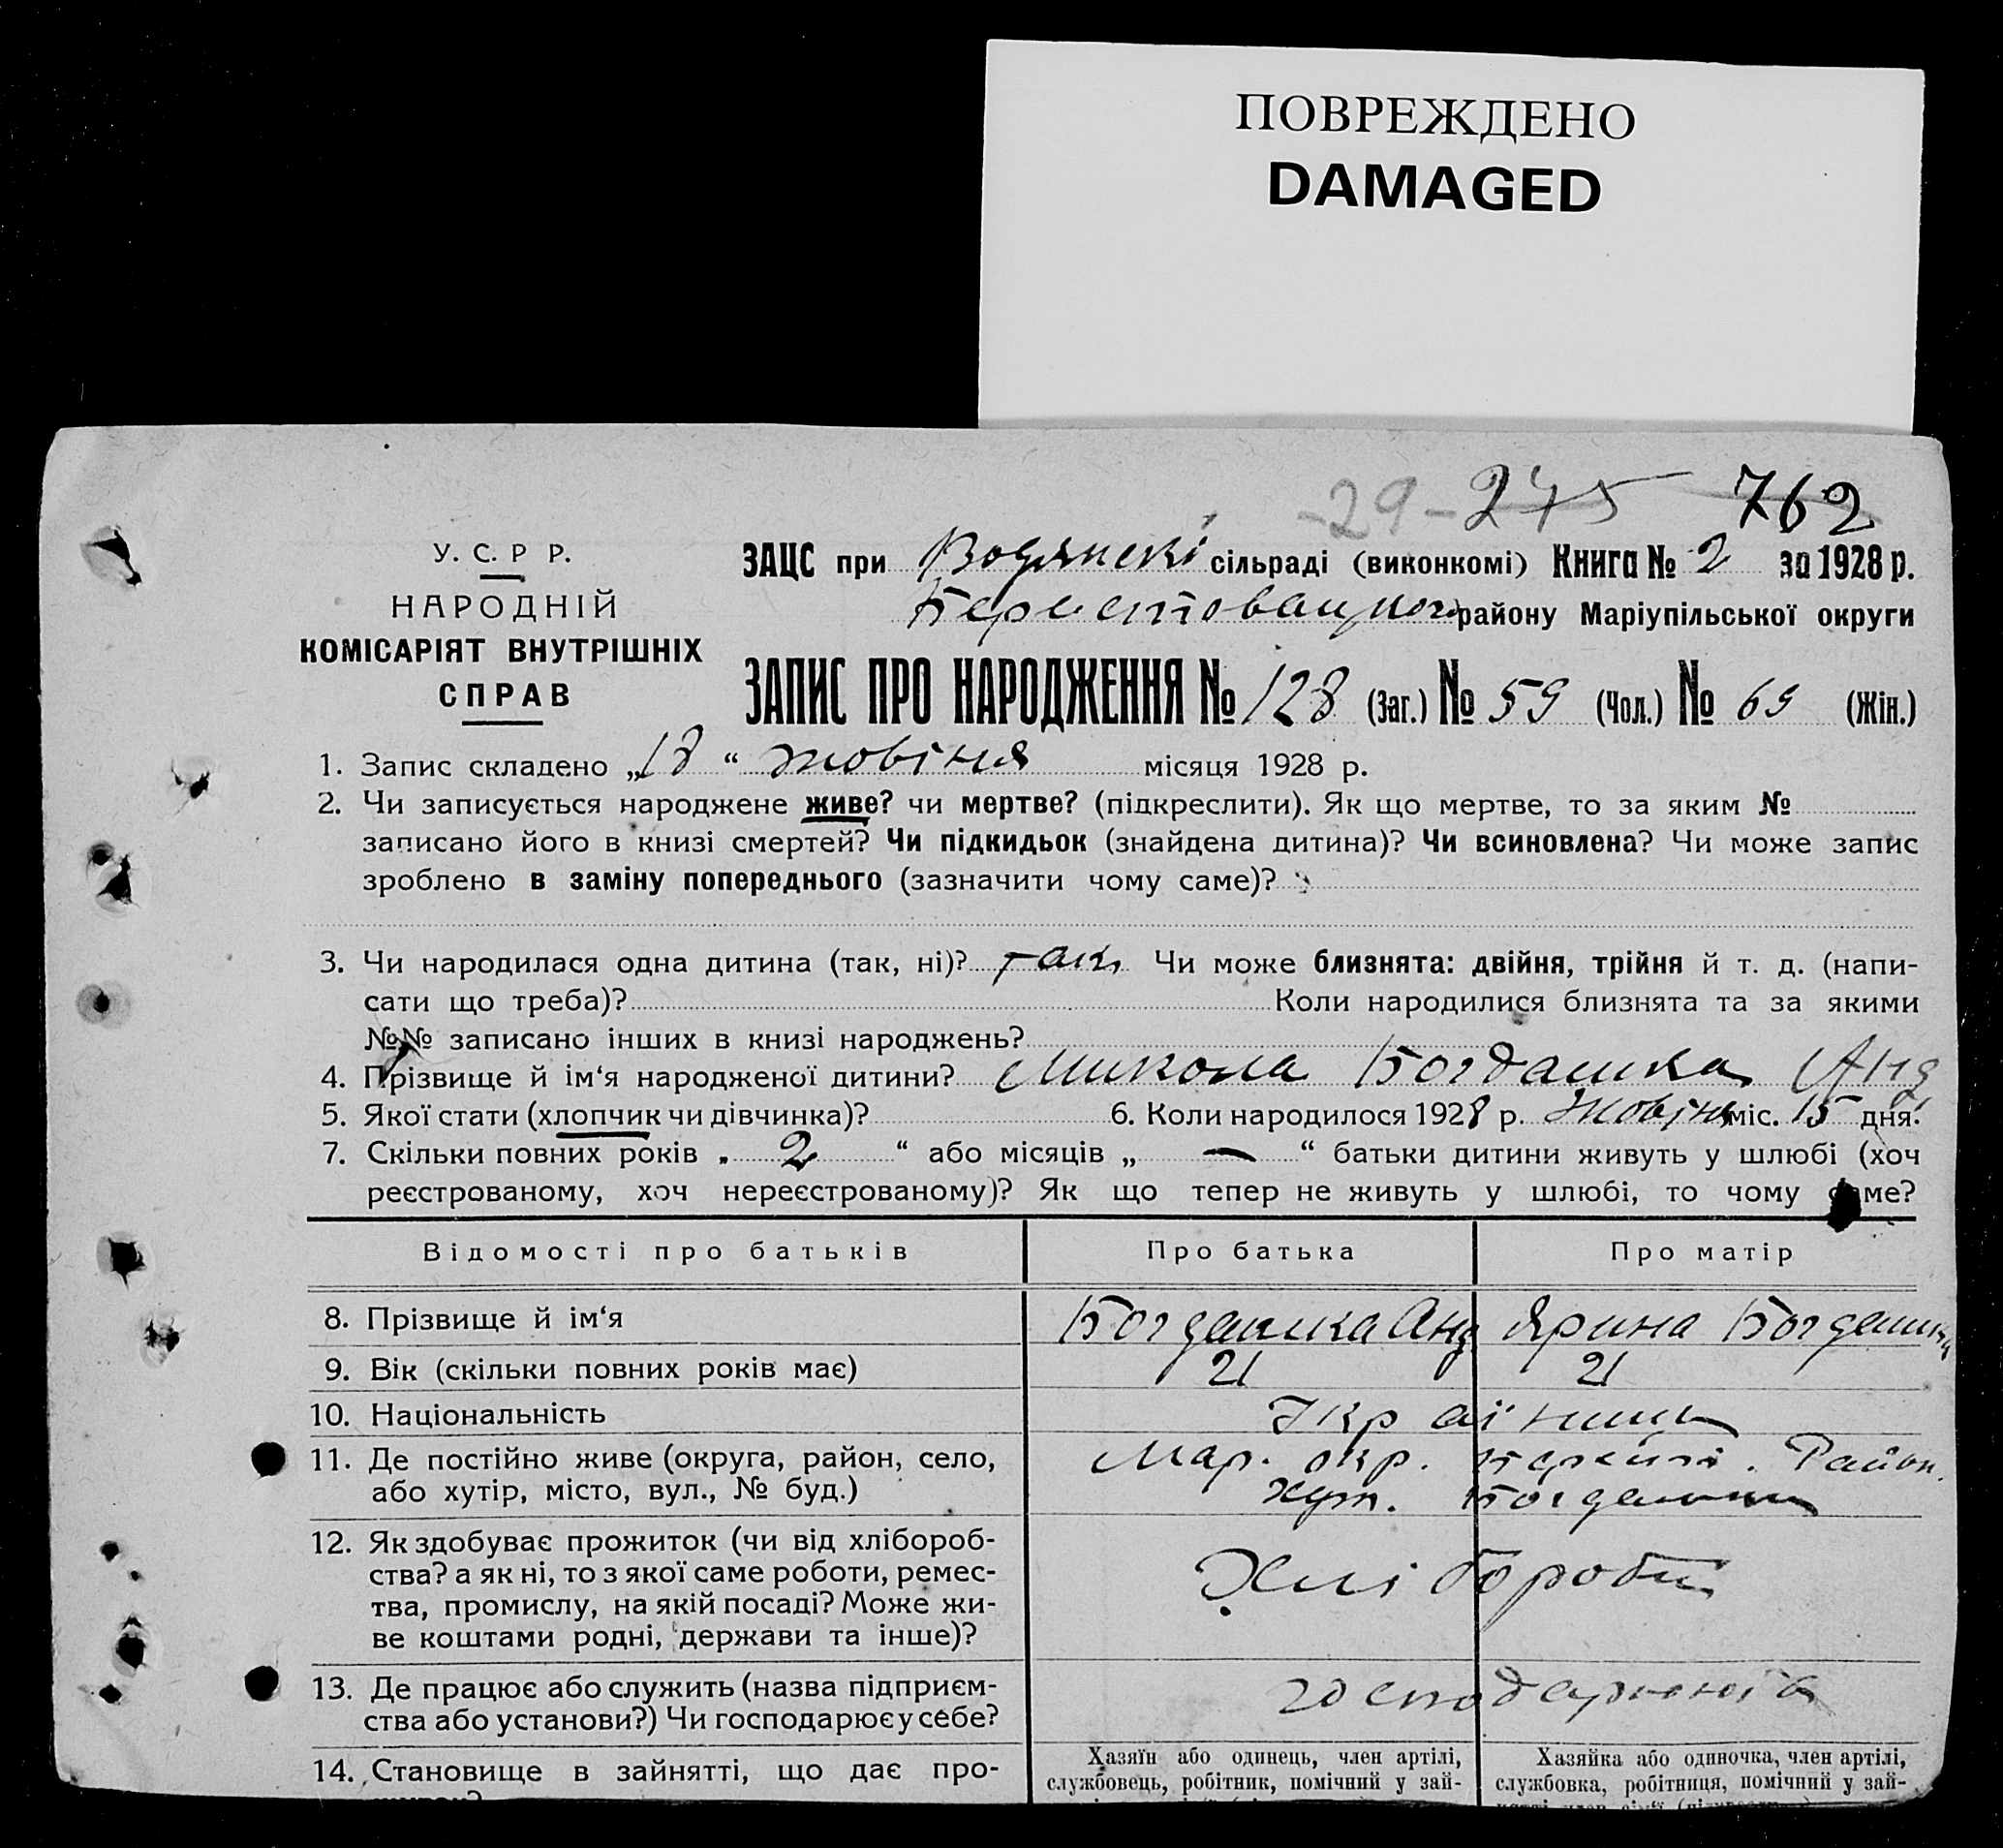 ПОВРЕЖДЕНО
DAMAGED
-29-245 762
У. С. Р Р.
НАРОДНІЙ
КОМІСАРІЯТ ВНУТРІШНІХ
СПРАВ
ЗАЦС при Водянскі сільраді (виконкомі) Книга № 2 за 1928 р.
району Маріупільської округи
ЗАПИС ПРО НАРОДЖЕННЯ № 128 (Заг.) № 59 (Чол.) № 69 (Жін.)
1. Запис складено „18“ жовтня місяця 1928 р.
2. Чи записується народжене живе? чи мертве? (підкреслити). Як що мертве, то за яким №
записано його в книзі смертей? Чи підкидьок (знайдена дитина)? Чи всиновлена? Чи може запис
зроблено в заміну попереднього (зазначити чому саме)?
3. Чи народилася одна дитина (так, ні)? так Чи може близнята: двійня, трійня й т. д. (напи-
сати що треба)? Коли народилися близнята та за якими
№№ записано інших в книзі народжень?
4. Прізвище й ім‘я народженої дитини? Микола Богдашка Анд
5. Якої стати (хлопчик чи дівчинка)? 6. Коли народилось 1928 р. міс. 15 дня.
7. Скільки повних років „ 2 “ або місяців „ — “ батьки дитини живуть у шлюбі (хоч
реєстрованому, хоч нереєстрованому)? Як що тепер не живуть у шлюбі, то чому саме?
Відомості про батьків Про батька Про матір
8. Прізвище й ім‘я Богдашка Анд Ярина Богдашка
9. Вік (скільки повних років має) 21 21
10. Національність Українці
11. Де постійно живе (округа, район, село, Мар. окр. Район.
або хутір, місто, вул., № буд.) хут.
12. Як здобуває прожиток (чи від хлібороб-
ства? а як ні, то з якої саме роботи, ремес-
тва, промислу, на якій посаді? Може жи-
ве коштами родні, держави та інше)?
13. Де працює або служить (назва підприєм-
ства або установи?) Чи господарює у себе?
14. Становище в зайнятті, що дає про-
Хазяїн або одинець, член артілі,
службовець, робітник, помічний у зай-
Хазяйка або одиночка, член артілі,
службовка, робітниця, помічний у зай-